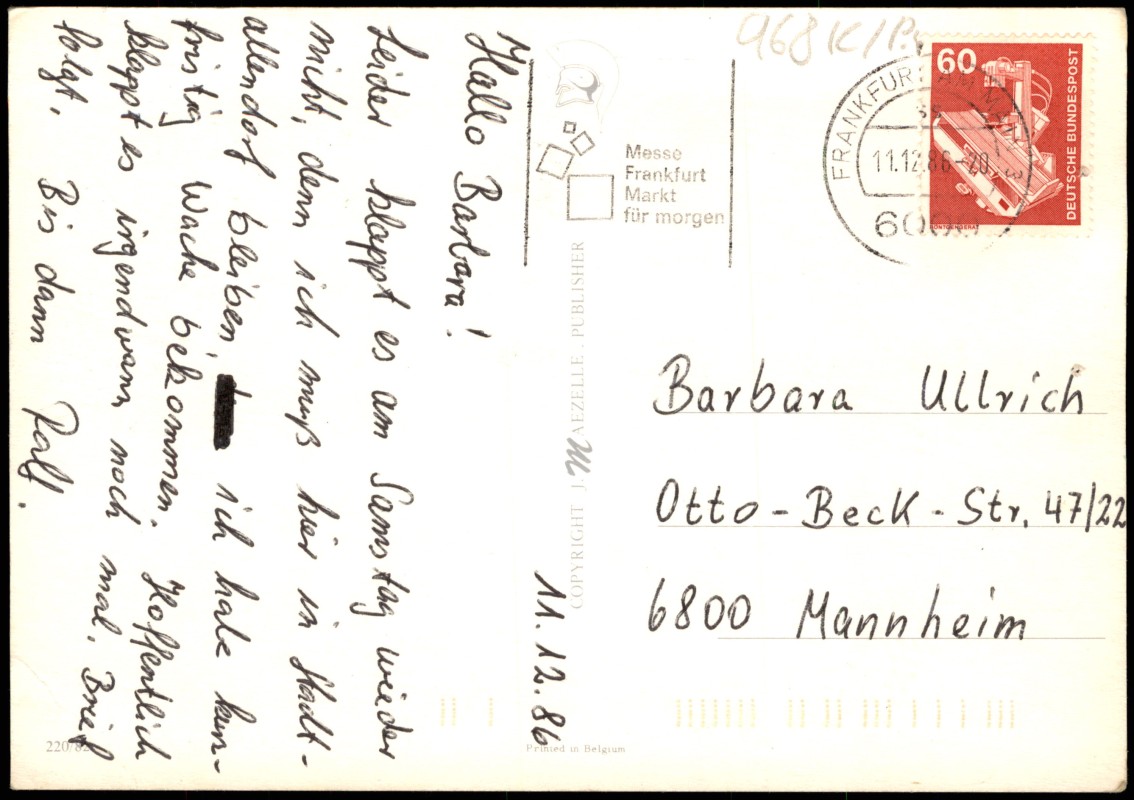 11.12.86
Hallo Barbara!
Leider klappt es am Samstag wieder
nicht, denn ich muß hier in Stadt-
allendorf bleiben, ich habe kurz-
fristig Wache bekommen. Hoffentlich
klappt es irgendwann noch mal. Brief
folgt. Bis dann Ralf.
968 K/P.
Messe
Frankfurt
Markt
für morgen
FRANKFURT AM MAIN 3
ss
11.12.86-20
6000
60
DEUTSCHE BUNDESPOST
RÖNTGENGERÄT
Barbara Ullrich
Otto-Beck-Str. 47/22
6800 Mannheim
COPYRIGHT J. MAEZELLE. PUBLISHER
220/82
Printed in Belgium